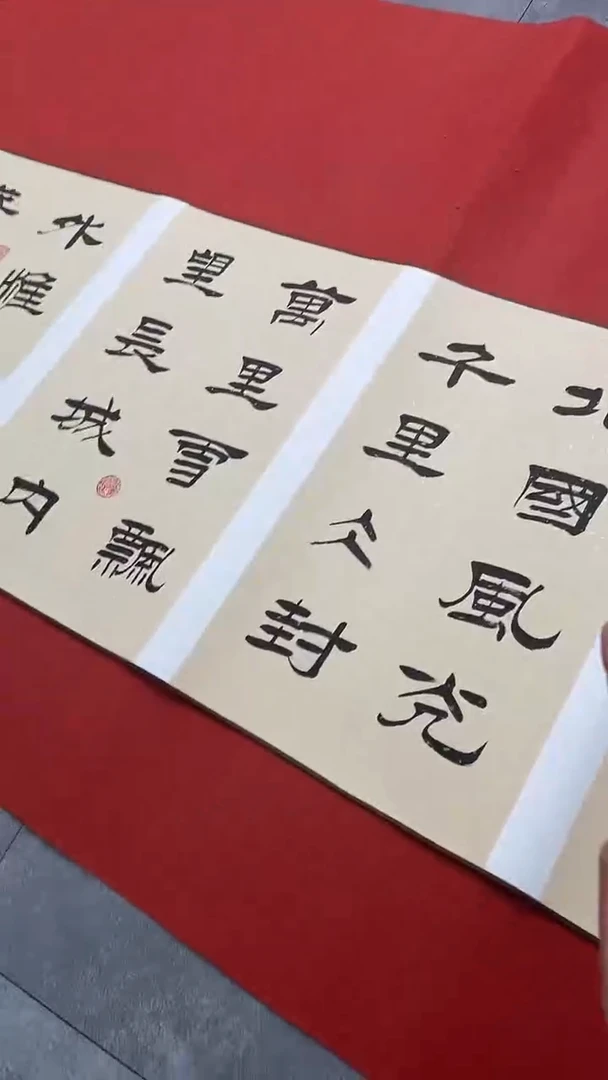 北國風光
千里仌封
萬里雪飄
望長城內
外惟